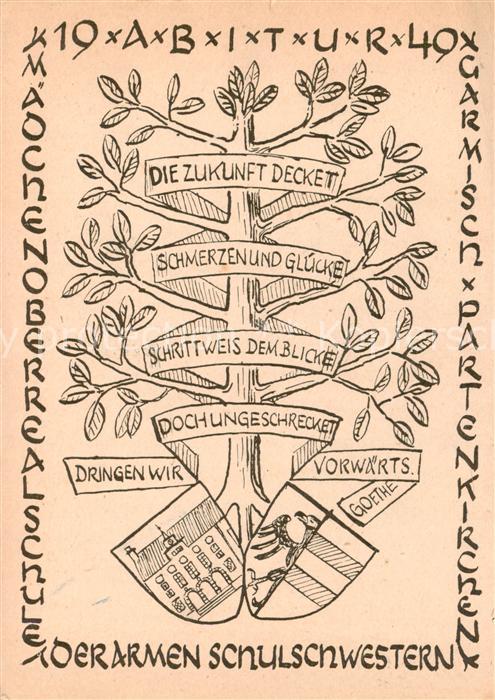 19 × A × B × I × T × U × R × 49
MÄDCHENOBERREALSCHULE
DER ARMEN SCHULSCHWESTERN
GARMISCH × PARTENKIRCHEN
DIE ZUKUNFT DECKET
SCHMERZEN UND GLÜCKE
SCHRITTWEIS DEM BLICKE
DOCH UNGESCHRECKET
DRINGEN WIR
VORWÄRTS.
GOETHE